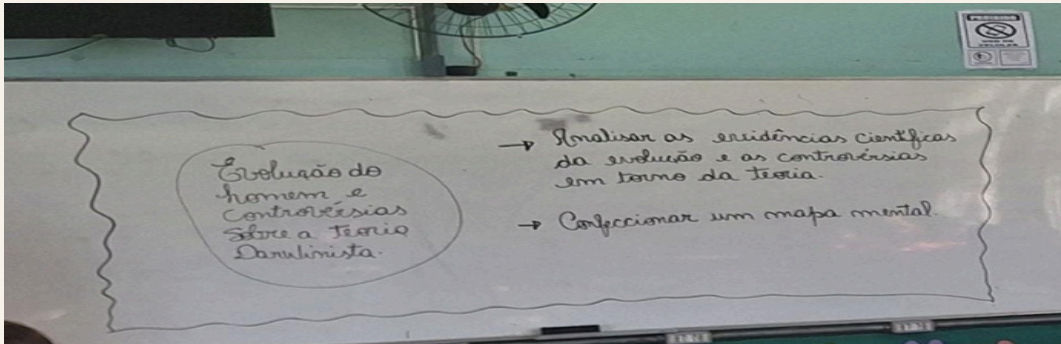 Evolução do
homem e
controvérsias
sobre a teoria
Darwinista.
→ Analisar as evidências científicas
da evolução e as controvérsias
em torno da teoria.
→ Confeccionar um mapa mental.
PROIBIDO
USO DE
CELULAR